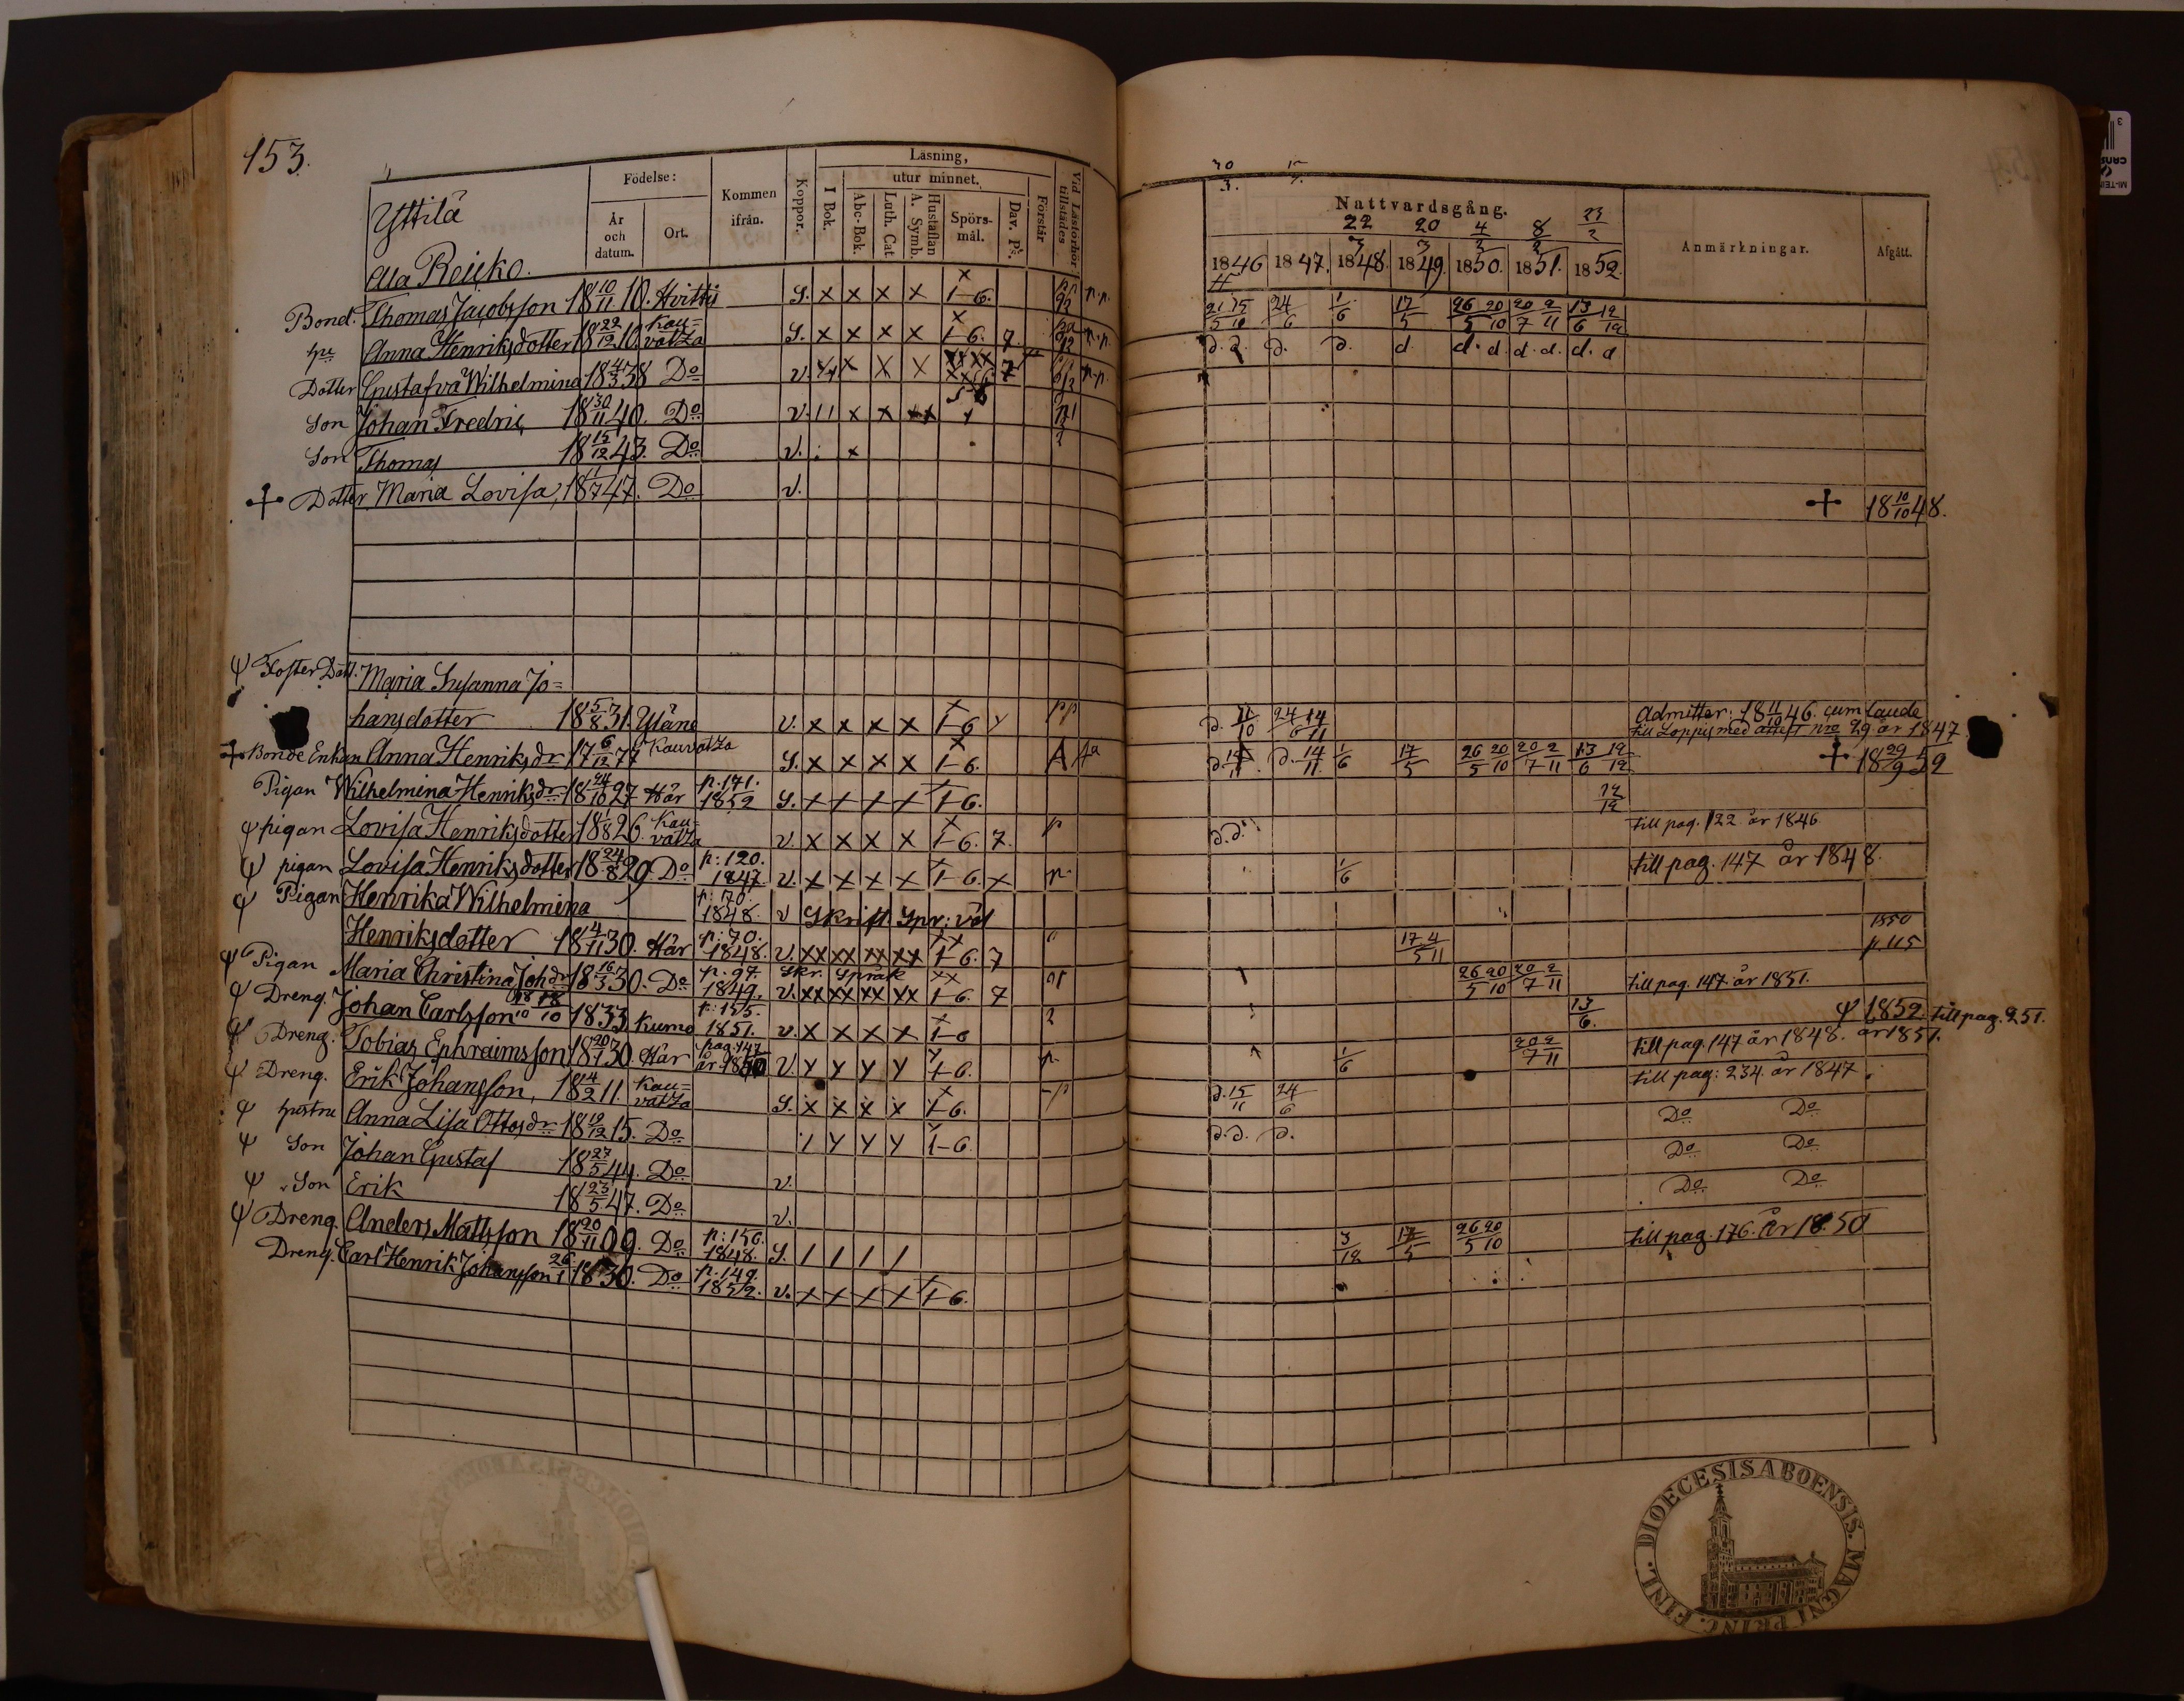 153.
Yttilä
Ala Reiiko.
Födelse:
År och datum.
Ort.
Kommen ifrån.
Koppor.
Läsning,
I Bok.
utur minnet.
Abc-Bok.
Luth. Cat
Hustaflan A. Symb.
Spörsmål.
Dav. Ps.
Förstår
Vid Läsförhör tillstädes
Nattvardsgång.
22 20 4 8 23
3 3 2 2 2
1846 1847. 1848. 1849. 1850. 1851. 1852.
Anmärkningar.
Afgått.
Bond. Thomas Jacobsson 18 10/11 10. Hvittis S. x x x x 1-6. p.p. 21/5 15/10 24/6 1/6 17/5 26/5 20/10 20/7 2/11 13/6 12/12
hu Anna Henriksdotter 18 22/12 10 Kauvatza S. x x x x 1-6. 7. p.p. d. d. d. d. d d. d d. d. d. d
Dotter Gustafva Wilhelmina 18 4/3 38 Do v. x x x 7 p.p.
Son Johan Fredric 18 30/11 40. Do v. 11 x x xx
Son Thomas 18 15/12 43. Do v. x
+ Dotter Maria Lovisa, 18 1/7 47. Do v. + 18 10/10 48.
ψ Foster Dott. Maria Susanna Johansdotter 18 5/8 31 Yläne v. x x x x 1-6 pp d. 11/10 24/6 14/11 Admitter: 18 11/10 46. cum laude
till Loppis med attest no 29 år 1847.
+ Bonde Enkan Anna Henriksdr 17 6/12 77 Kauvatza S. x x x x 1-6. d. 14/11. d. 14/11. 1/6 17/5 26/5 20/10 20/7 2/11 13/6 12/12 + 18 29/9 52
Pigan Wilhelmina Henriksdr 18 24/10 27 Här p. 171. 1852 S. x x x x 1-6. 12/12
ψ pigan Lovisa Henriksdotter 18 1/8 26. Kauvatza v. x x x x 1-6. 7. p d.d. till pag. 122 år 1846
ψ pigan Lovisa Henriksdotter 18 24/8 29. Do p: 120. 1847. v. x x x x 1-6. x p. 1/6 till pag. 147 år 1848.
ψ Pigan Henrika Wilhelmina p: 70. 1848. v Skrift Spr: väl
Henriksdotter 18 4/11 30. Här p: 70. 1848. v. xx xx xx xx 1-6. 7 17/5 4/11 1850 p. 115
ψ Pigan Maria Christina Johdr 18 16/3 30. Do p. 97 1849. Skr. Språk v. xx xx xx xx 1-6. 7 26/5 20/10 20/7 2/11 till pag. 147 år 1851.
ψ Dreng. Johan Carlsson 18/10 1833 Kumo p: 155. 1851. v. x x x x 1-6 13/6. ψ 1852 till pag. 251.
ψ Dreng. Tobias Ephraimsson 18 20/1 30. Här pag. 147 år 1850 v. y y y y 1-6. p. 1/6 20/7 2/11 till pag. 147 år 1848. år 1851.
ψ Dreng. Erik Johansson, 18 14/2 11. Kauvatza S. x x x x 1-6. d. 15/11 24/6 till pag: 234. år 1847.
ψ hustru Anna Lisa Ottosdr 18 12/12 15. Do y y y y 1-6. d. d. d. Do Do
ψ Son Johan Gustaf 18 27/5 44. Do v. Do Do
ψ Son Erik 18 23/5 47. Do v. Do Do
ψ Dreng. Anders Matsson 18 20/11 09. Do p: 156. 1848. S. / / / / 3/12 17/5 26/5 20/10 till pag. 176. År 1850
Dreng. Carl Henrik Johansson 26/1 1830. Do p. 149. 1852. v. x x x x 1-6.
FINL. DIOECESIS ABOENSIS. MAGNI PRINC.